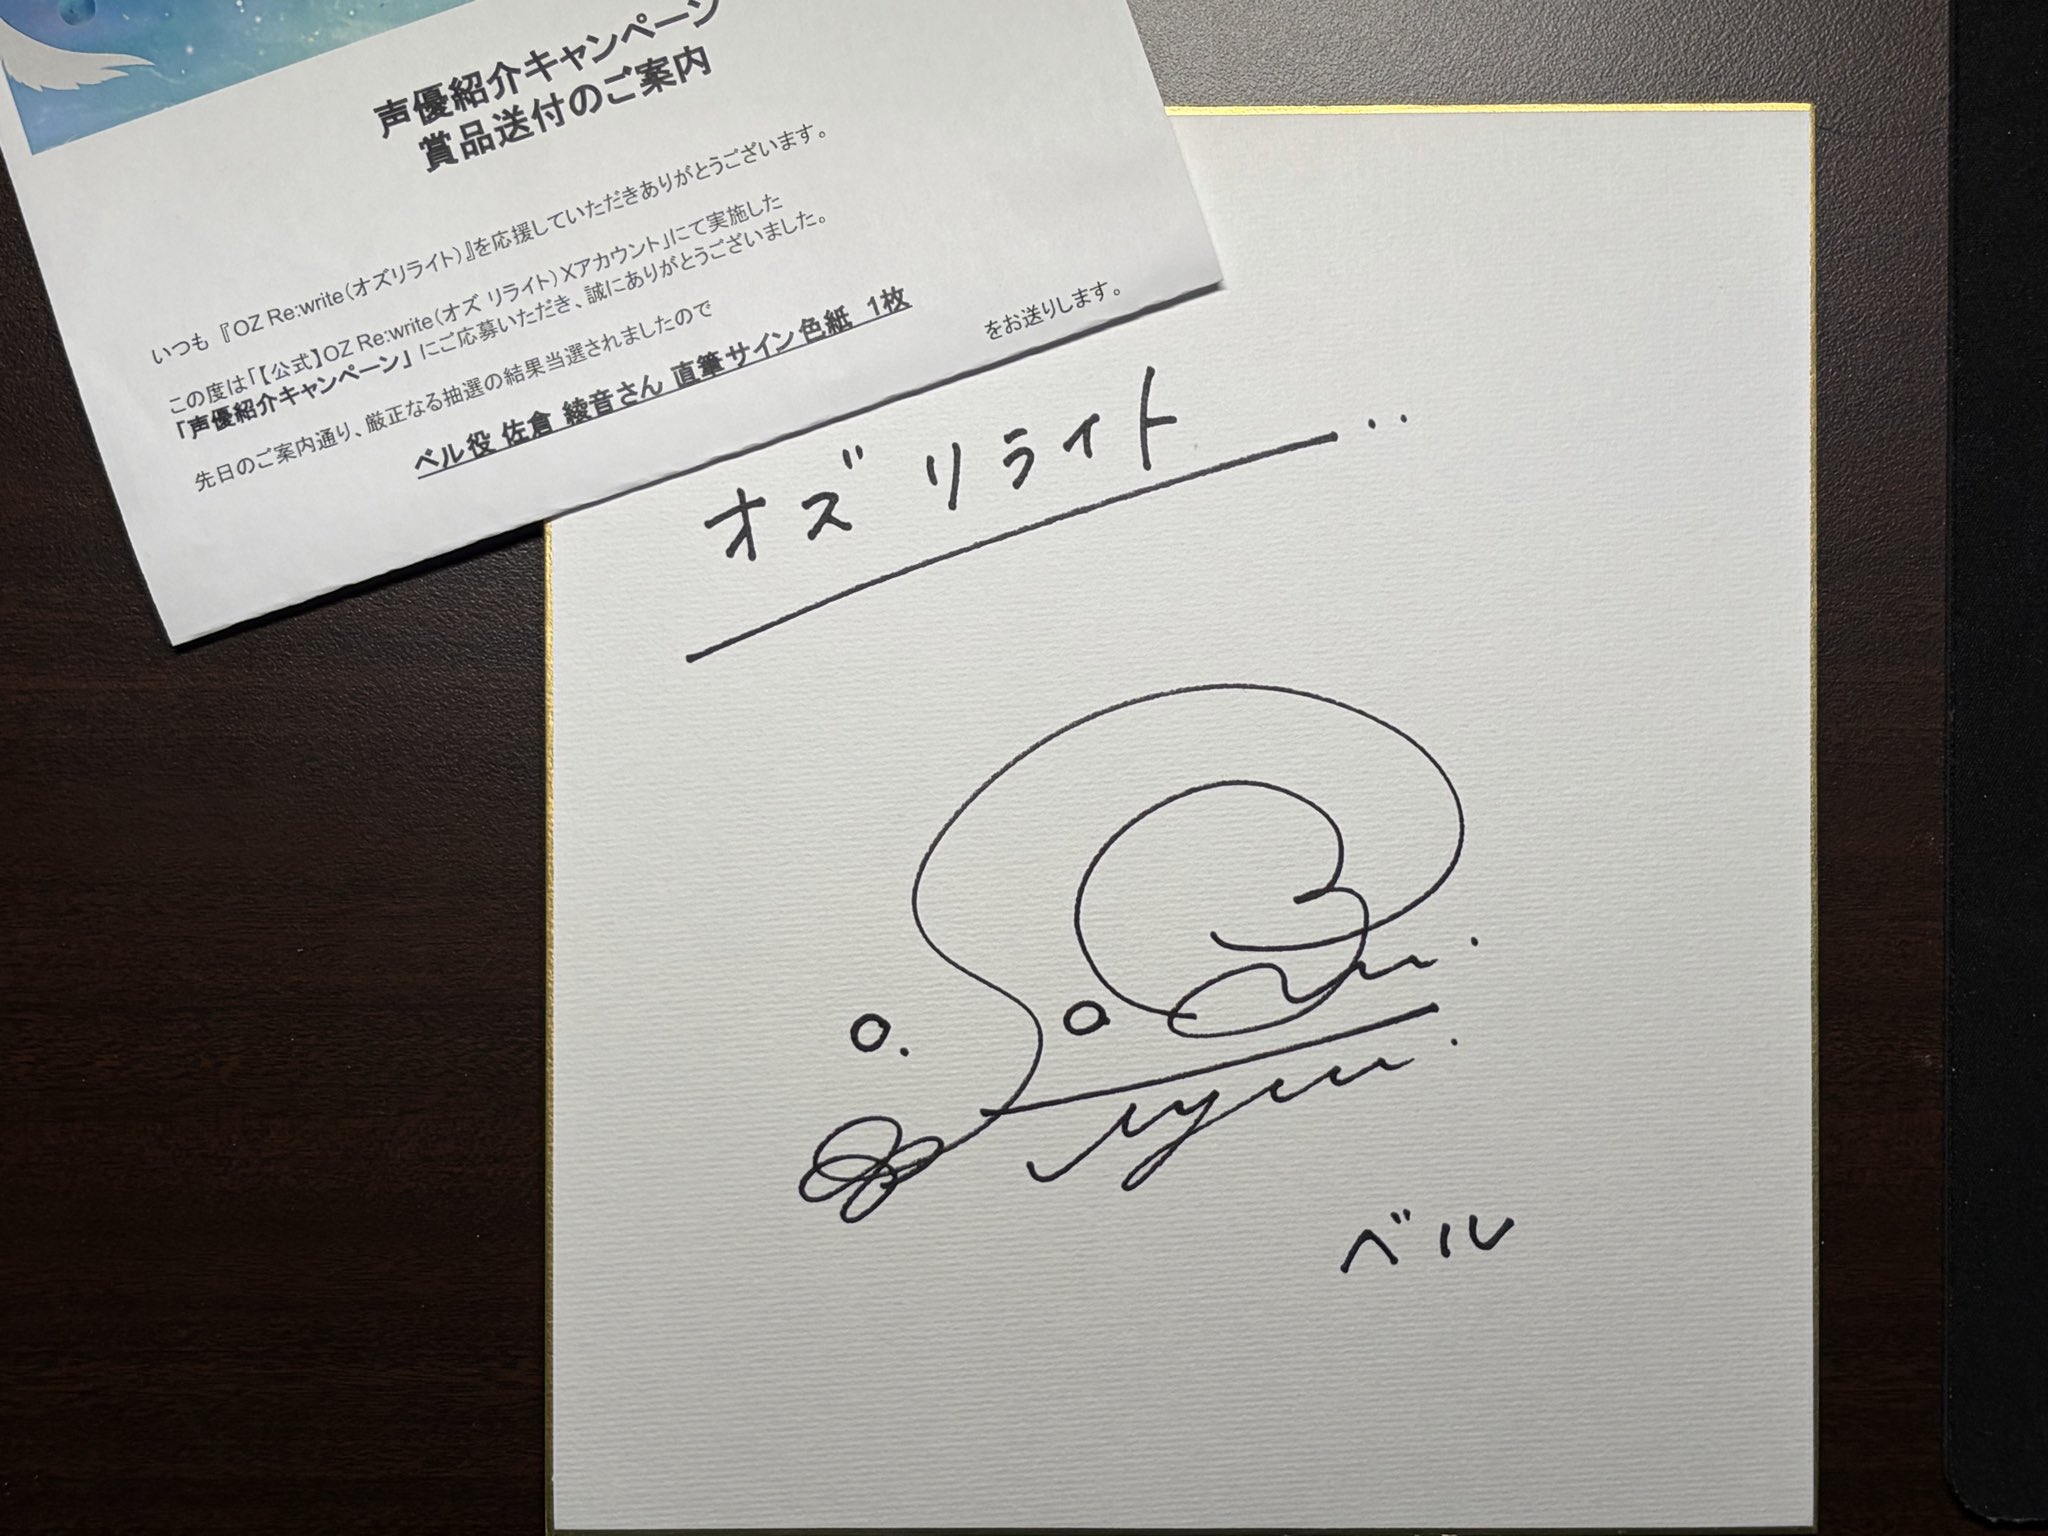 声優紹介キャンペーン
賞品送付のご案内
いつも『OZ Re:write(オズリライト)』を応援していただきありがとうございます。
この度は「【公式】OZ Re:write(オズ リライト)Xアカウント」にて実施した
「声優紹介キャンペーン」にご応募いただき、誠にありがとうございました。
先日のご案内通り、厳正なる抽選の結果当選されましたので
ベル役 佐倉 綾音さん 直筆サイン色紙 1枚 をお送りします。
オズ リライト
ベル